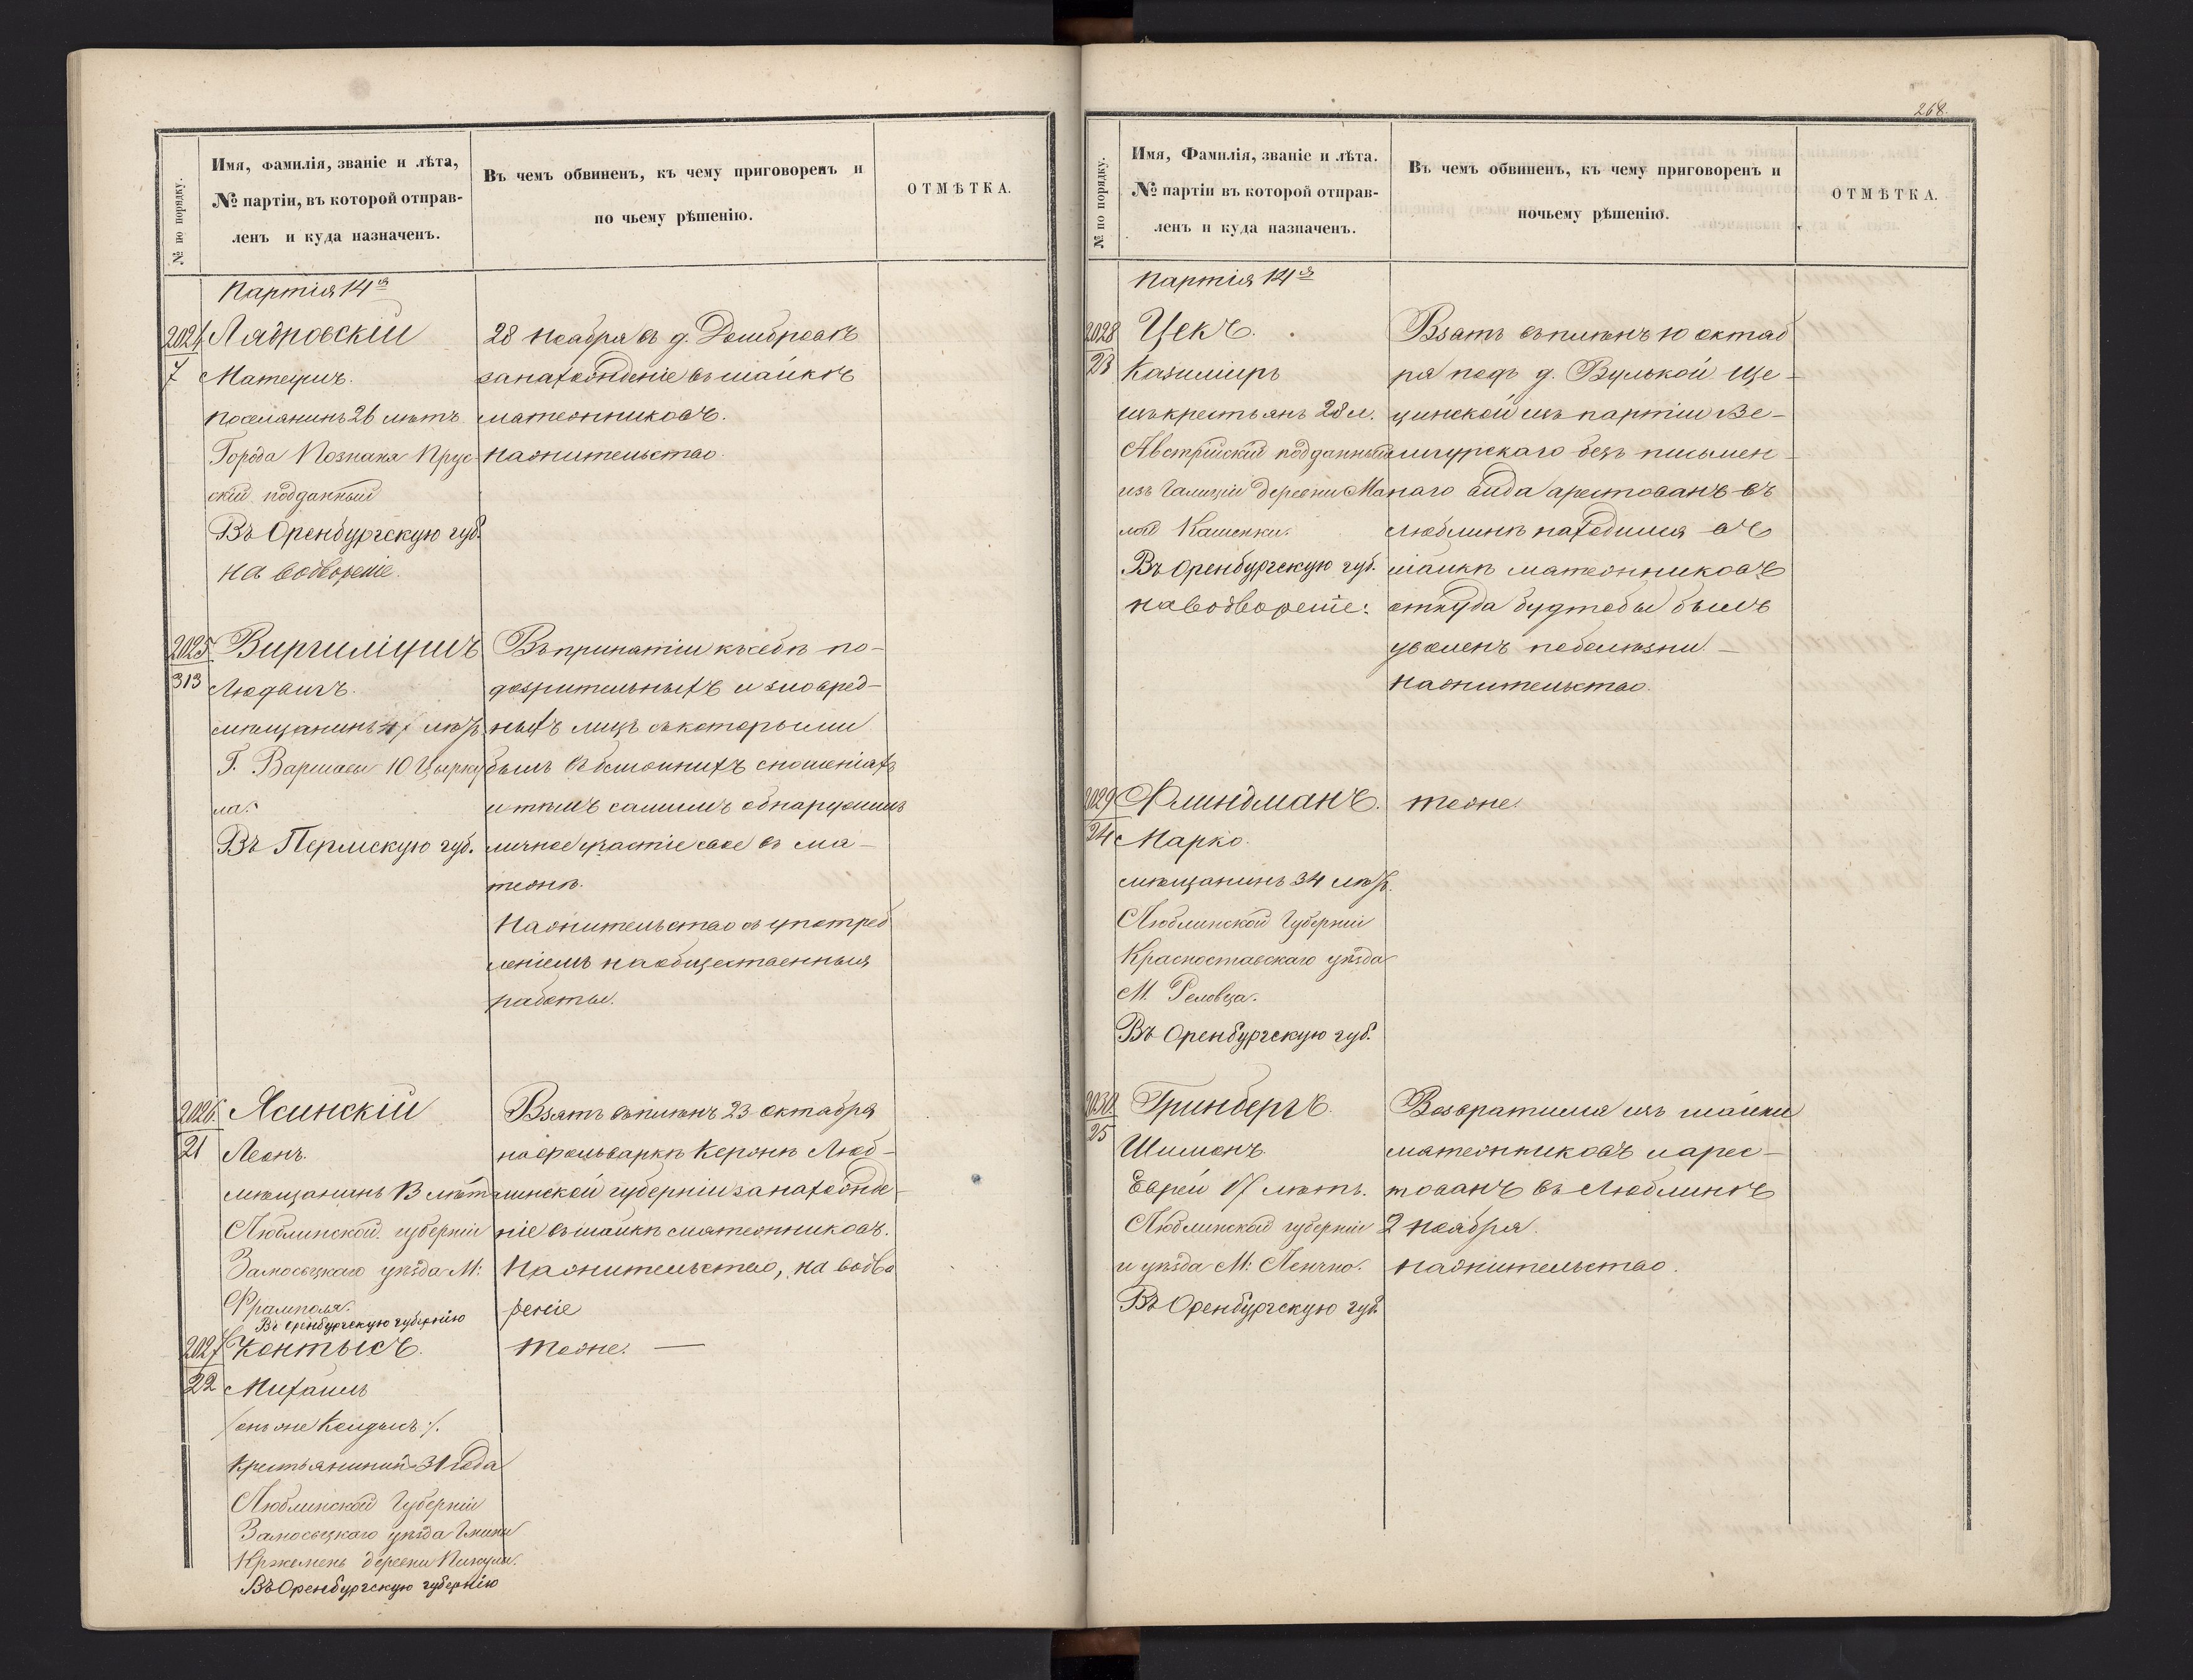 № по порядку.
Имя, фамилія, званіе и лѣта,
№ партіи, въ которой отправ-
ленъ и куда назначенъ.
Въ чемъ обвиненъ, къ чему приговоренъ и
по чьему рѣшенію.
ОТМѢТКА.
Партія 14я
2024
7
Лядровскій
Матеушъ.
поселянинъ 26 лѣтъ
Города Познаня Прус-
скій подданный
Въ Оренбургскую губ.
на водвореніе.
28 Ноября въ д. Домбровкѣ
за нахожденіе въ шайкѣ
мятежниковъ.
На жительство.
2025
313
Виргиліушъ
Людвигъ.
мѣщанинъ 47 лѣтъ
Г. Варшавы 10 Цырку
ла.
Въ Пермскую губ.
Въ принятіи къ себѣ по-
дозрительныхъ и зловред-
ныхъ лицъ съ которыми
былъ въ близкихъ сношеніяхъ
и тѣмъ самымъ обнаружилъ
личное участіе свое въ мя-
тежѣ.
На жительство съ употреб
леніемъ на общественныя
работы.
2026.
21
Ясинскій
Леонъ.
мѣщанинъ 13 лѣтъ
Люблинской губерніи
Замосьцкаго уѣзда М:
Фрамполя.
Въ Оренбургскую губернію
Взятъ въ плѣнъ 23 октября
на фольваркѣ Кержнѣ Люб-
линской губерніи за нахожде-
ніе въ шайкѣ мятежниковъ.
На жительство, на водво
реніе
2027
22
Контысъ.
Михаилъ
/онъ же Кондысъ:/.
Крестьянинъ 31 года
Люблинской Губерніи
Замосьцкаго уѣзда Гмины
Кржемень деревни Пикули.
Въ Оренбургскую губернію
тоже. —
268.
№ по порядку.
Имя, Фамилія, званіе и лѣта.
№ партіи въ которой отправ-
ленъ и куда назначенъ.
Въ чемъ обвиненъ, къ чему приговоренъ и
почьему рѣшенію.
ОТМѢТКА.
Партія 14я
2028
23
Цекъ.
Казиміръ
изъ крестьянъ 28 л.
Австрійскій подданный
изъ Галиціи деревни Ма
лой Каменки.
Въ Оренбургскую губ.
на водвореніе:
Взятъ въ плѣнъ 10 октяб
ря подъ д. Вулькой Ще-
цинской изъ партіи Ве-
лигурскаго безъ письмен-
наго вида арестованъ въ
Люблинѣ находился въ
шайкѣ мятежниковъ
откуда будтобы былъ
уволенъ по болѣзни —
На жительство.
2029
24
Флиндманъ.
Марко.
мѣщанинъ 34 лѣтъ.
Люблинской Губерніи
Красноставскаго уѣзда
М. Реіовца.
Въ Оренбургскую губ.
тоже.
2030
25
Гринбергъ.
Шимонъ.
Еврей 17 лѣтъ.
Люблинской губерніи
и уѣзда М: Ленчно.
Въ Оренбургскую губ.
Возвратился изъ шайки
мятежниковъ и арес-
тованъ въ Люблинѣ
2 ноября.
На жительство.